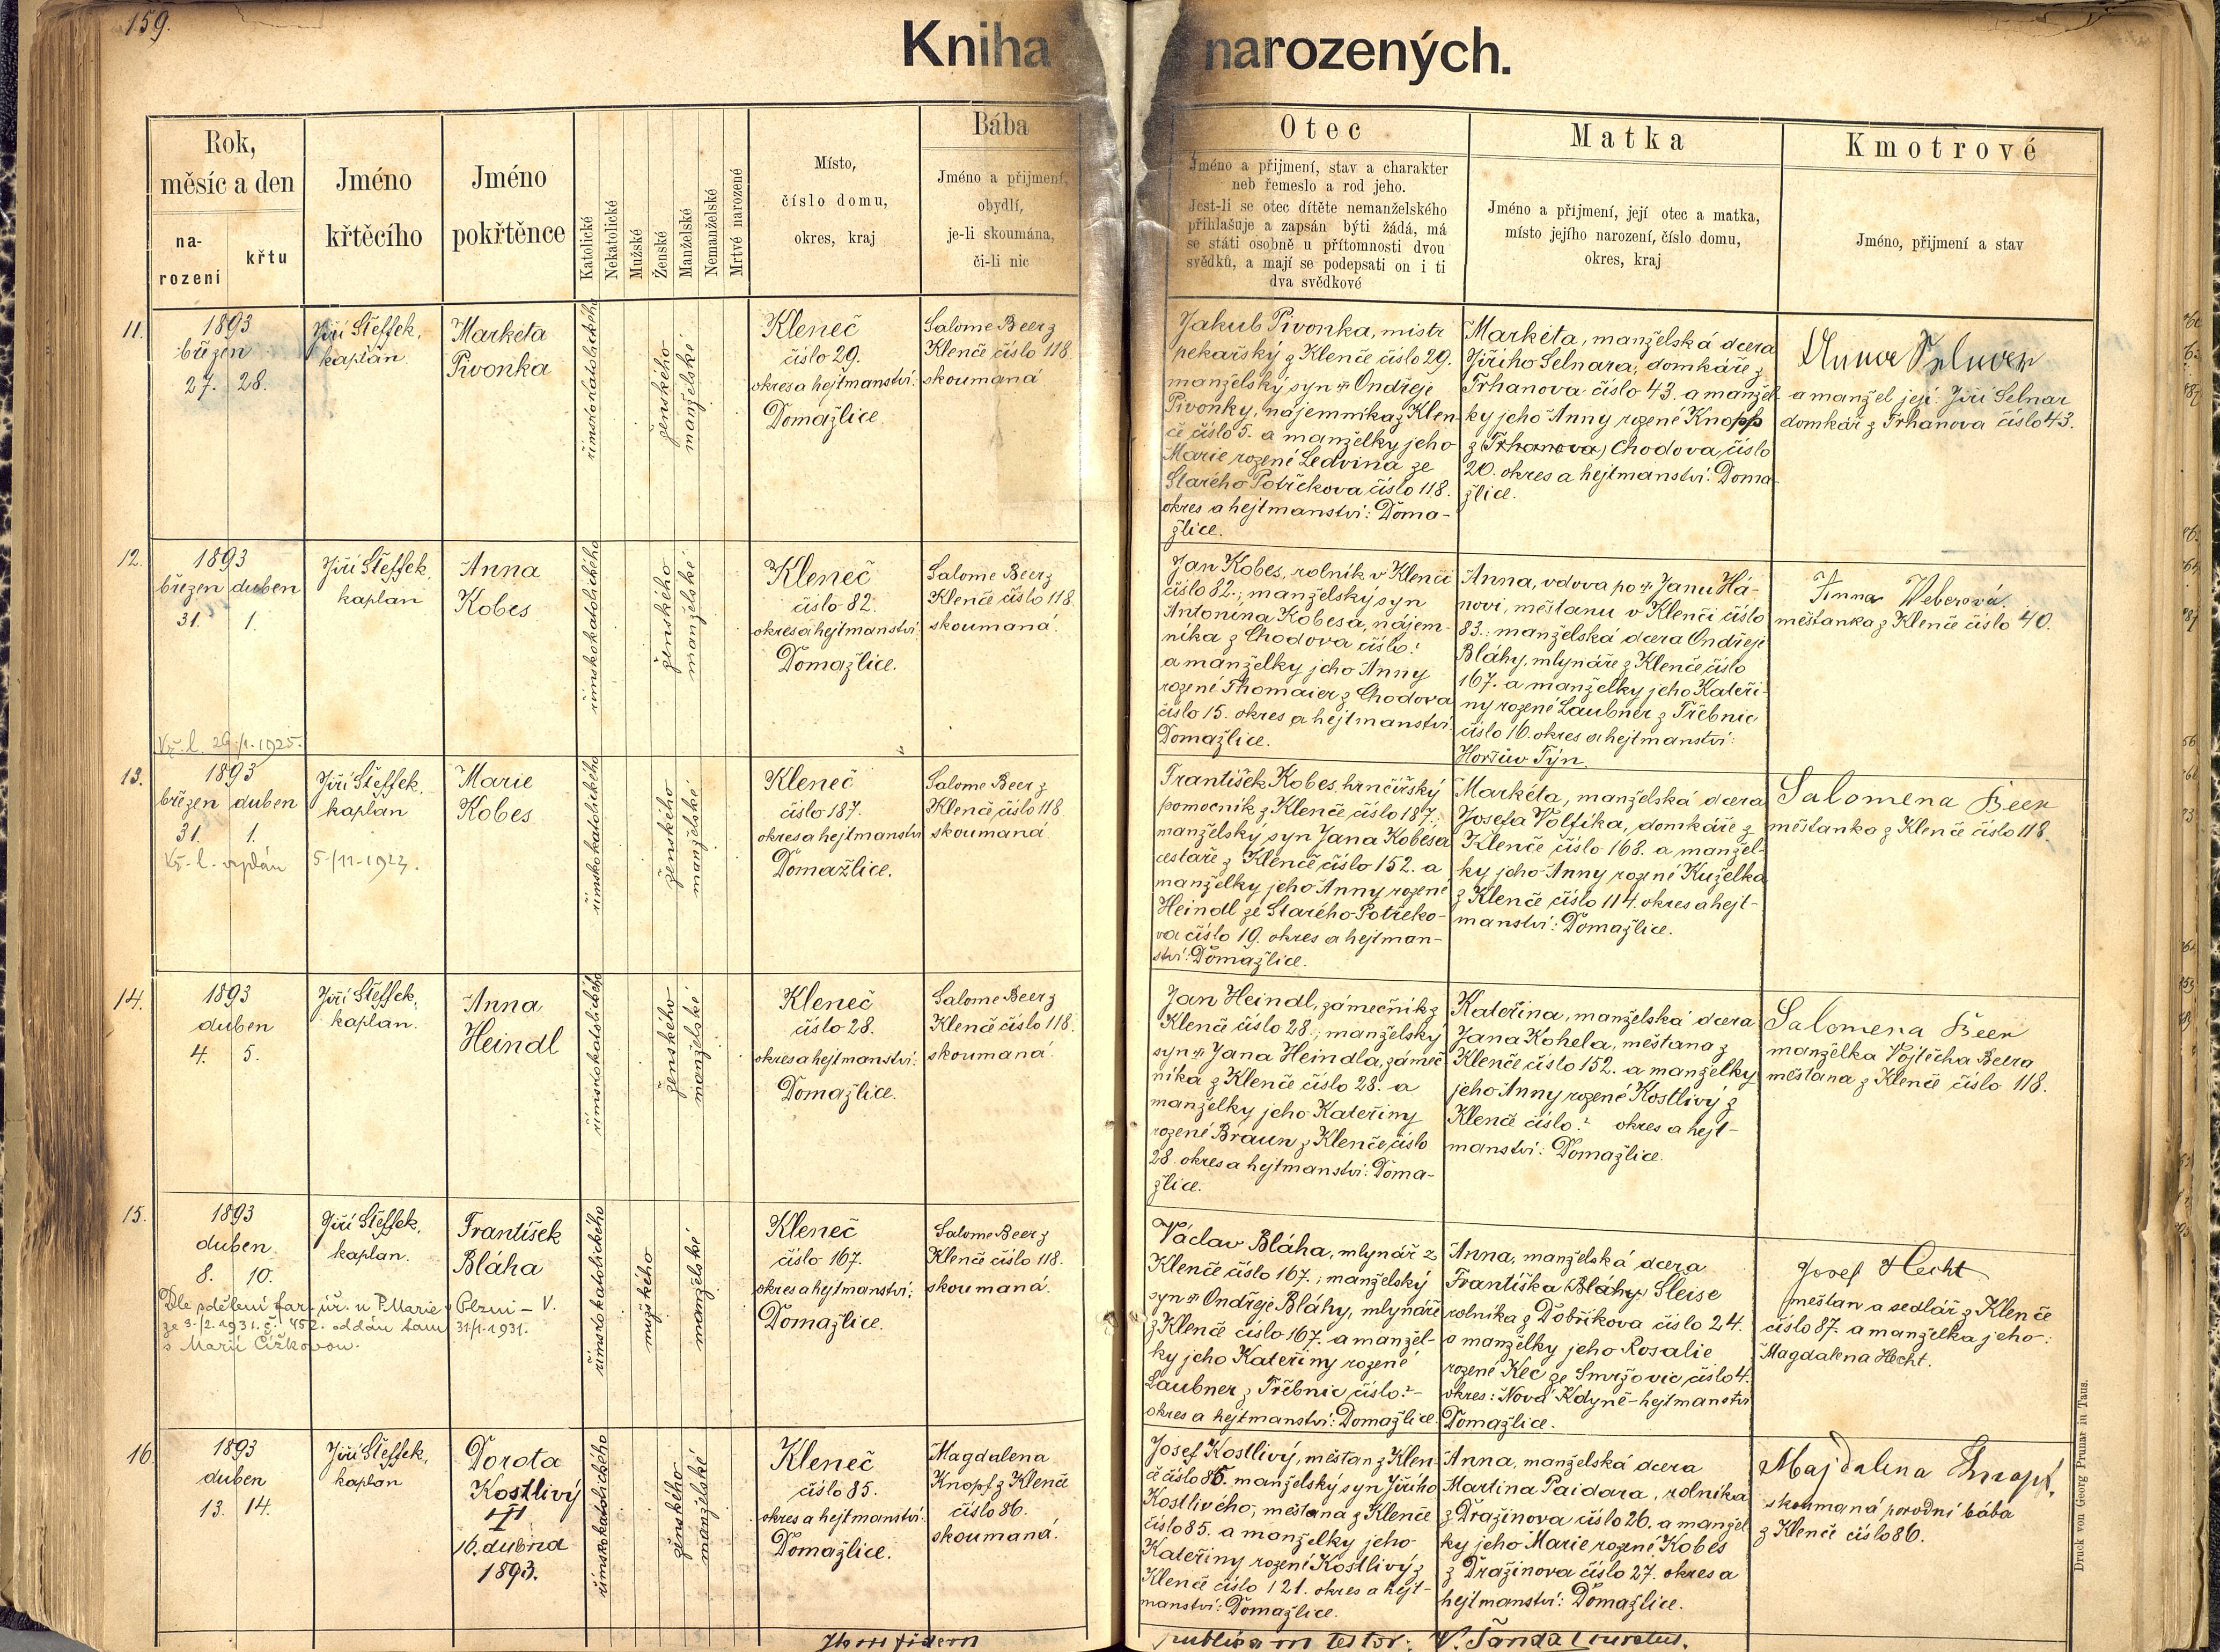 159.
Kniha narozených.
Rok,
měsíc a den
na-
rození
křtu
Jméno
křtěcího
Jméno
pokřtěnce
Katolické
Nekatolické
Mužské
Ženské
Manželské
Nemanželské
Mrtvé narozené
Místo,
číslo domu,
okres, kraj
Bába
Jméno a přijmení,
obydlí,
je-li skoumána,
či-li nic
Otec
Jméno a přijmení, stav a charakter
neb řemeslo a rod jeho.
Jest-li se otec dítěte nemanželského
přihlašuje a zapsán býti žádá, má
se státi osobně u přítomnosti dvou
svědků, a mají se podepsati on i ti
dva svědkové
Matka
Jméno a přijmení, její otec a matka,
místo jejího narození, číslo domu,
okres, kraj
Kmotrové
Jméno, přijmení a stav
11.
1893
březen
27. 28.
Jiří Šteffek,
kaplan.
Marketa
Pivonka
římskokatolického
ženského
manželské
Kleneč
číslo 29.
okres a hejtmanství:
Domažlice.
Salome Beer z
Klenče číslo 118.
skoumaná
Jakub Pivonka, mistr
pekařský z Klenče číslo 29.
manželský syn Ondřeje
Pivonky, nájemníka z Klen-
če číslo 5. a manželky jeho
Marie rozené Ledvina ze
Starého Potřekova číslo 118.
okres a hejtmanství: Doma-
žlice.
Markéta, manželská dcera
Jiřího Selnara, domkáře z
Trhanova číslo 43. a manžel-
ky jeho Anny rozené Knopp
z (Trhanova) Chodova, číslo
20. okres a hejtmanství: Doma-
žlice.
a manžel její: Jiří Selnar
domkář z Trhanova číslo 43.
12.
1893
březen duben
31. 1.
Vý. l. 29./1. 1925.
Jiří Šteffek,
kaplan
Anna
Kobes
římskokatolického
ženského
manželské
Kleneč
číslo 82.
okres a hejtmanství:
Domažlice.
Salome Beer z
Klenče číslo 118.
skoumaná.
Jan Kobes, rolník v Klenči
číslo 82.; manželský syn
Antonína Kobesa, nájem-
níka z Chodova číslo?
a manželky jeho Anny
rozené Thomaier z Chodova
číslo 15. okres a hejtmanství
Domažlice.
Anna, vdova po Janu Há-
novi, měšťanu v Klenči číslo
83.; manželská dcera Ondřeje
Bláhy, mlynáře z Klenče číslo
167. a manželky jeho Kateři-
ny rozené Laubner z Třebnic
číslo 16. okres a hejtmanství:
Horšův Týn.
Anna Weberová.
měšťanka z Klenče číslo 40.
13.
1893
březen duben
31. 1.
Vý. l. vydán 5/11. 1923.
Jiří Šteffek,
kaplan
Marie
Kobes
římskokatolického
ženského
manželské
Kleneč
číslo 187.
okres a hejtmanství
Domažlice.
Salome Beer z
Klenče číslo 118.
skoumaná.
František Kobes, hrnčířský
pomocník z Klenče číslo 187.;
manželský syn Jana Kobesa
cestáře z Klenče číslo 152. a
manželky jeho Anny rozené
Heindl ze Starého Potřeko-
va číslo 19. okres a hejtman-
ství: Domažlice.
Markéta, manželská dcera
Josefa Volfíka, domkáře z
Klenče číslo 168. a manžel-
ky jeho Anny rozené Kuželka
z Klenče číslo 114. okres a hejt-
manství: Domažlice.
Salomena Beer
měšťanka z Klenče číslo 118.
14.
1893
duben
4. 5.
Jiří Šteffek,
kaplan.
Anna
Heindl
římskokatolického
ženského
manželské
Kleneč
číslo 28.
okres a hejtmanství:
Domažlice.
Salome Beer z
Klenče číslo 118.
skoumaná.
Jan Heindl, zámečník z
Klenče číslo 28.; manželský
syn Jana Heindla, zámeč-
níka z Klenče číslo 28. a
manželky jeho Kateřiny
rozené Braun z Klenče, číslo
28. okres a hejtmanství: Doma-
žlice.
Kateřina, manželská dcera
Jana Kohela, měšťana z
Klenče číslo 152. a manželky
jeho Anny rozené Kostlivý z
Klenče číslo? okres a hejt-
manství: Domažlice.
Salomena Beer
manželka Vojtěcha Beera
měšťana z Klenče číslo 118.
15.
1893
duben
8. 10.
Dle sdělení far. úř. u P. Marie Plzni - V.
ze 3./2. 1931. č. 452. oddán tam 31/1. 1931.
s Marií Čížkovou.
Jiří Šteffek,
kaplan.
František
Bláha
římskokatolického
mužského
manželské
Kleneč
číslo 167.
okres a hejtmanství:
Domažlice.
Salome Beer z
Klenče číslo 118.
skoumaná.
Václav Bláha, mlynář z
Klenče číslo 167.; manželský
syn Ondřeje Bláhy, mlynáře
z Klenče číslo 167. a manžel-
ky jeho Kateřiny rozené
Laubner z Třebnic číslo?-
okres a hejtmanství: Domažlice.
Anna, manželská dcera
Františka (Bláhy) Sleise
rolníka z Dobříkova číslo 24.
a manželky jeho Rosalie
rozené Kec ze Smržovic, číslo 4.
okres: Nová Kdyně - hejtmanství
Domažlice.
Josef Hecht
měšťan a sedlář z Klenče
číslo 87. a manželka jeho:
Magdalena Hecht.
16.
1893
duben
13. 14.
Jiří Šteffek,
kaplan
Dorota
Kostlivý
16. dubna
1893.
římskokatolického
ženského
manželské
Kleneč
číslo 85.
okres a hejtmanství:
Domažlice.
Magdalena
Knopf z Klenče
číslo 86.
skoumaná.
Josef Kostlivý, měšťan z Klen-
če číslo 85. manželský syn Jiřího
Kostlivého, měšťana z Klenče
číslo 85. a manželky jeho
Kateřiny rozené Kostlivý z
Klenče číslo 121. okres a hejt-
manství: Domažlice.
Anna, manželská dcera
Martina Paidara, rolníka
z Dražinova číslo 26. a manžel-
ky jeho Marie rozené Kobes
z Dražinova číslo 27. okres a
hejtmanství: Domažlice.
Majdalena Knopf.
skoumaná porodní bába
z Klenče číslo 86.
fidem publicam testor: V. Šanda curatus.
Druck von Georg Prunar in Taus.